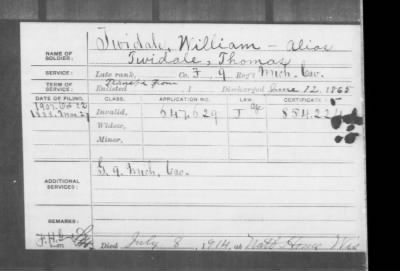 NAME OF SOLDIER: Twidale, William - alias
Twidale, Thomas
SERVICE: Late rank, Co. F, 9 Reg't Mich. Cav.
TERM OF SERVICE: Enlisted , 1 Discharged June 12, 1865
DATE OF FILING. CLASS. APPLICATION NO. LAW. CERTIFICATE
Invalid, 547,629
Widow,
Minor,
ADDITIONAL SERVICES: G. 9. Mich. Cav.
REMARKS:
Died July 8, 1914, at Natl Home Wis